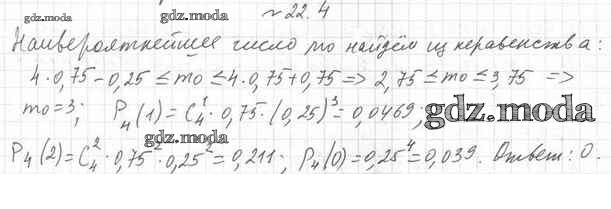 gdz.moda
№ 22.4
gdz.moda
Наивероятнейшее число mo найдём из неравенства:
4·0,75-0,25 ≤ mo ≤ 4·0,75+0,75 => 2,75 ≤ mo ≤ 3,75 =>
mo=3; P₄(1)=C₄¹·0,75·(0,25)³=0,0469;
gdz.moda
gdz.moda
P₄(2)=C₄²·0,75²·0,25²=0,211; P₄(0)=0,25⁴=0,039. Ответ: 0.
gdz.moda